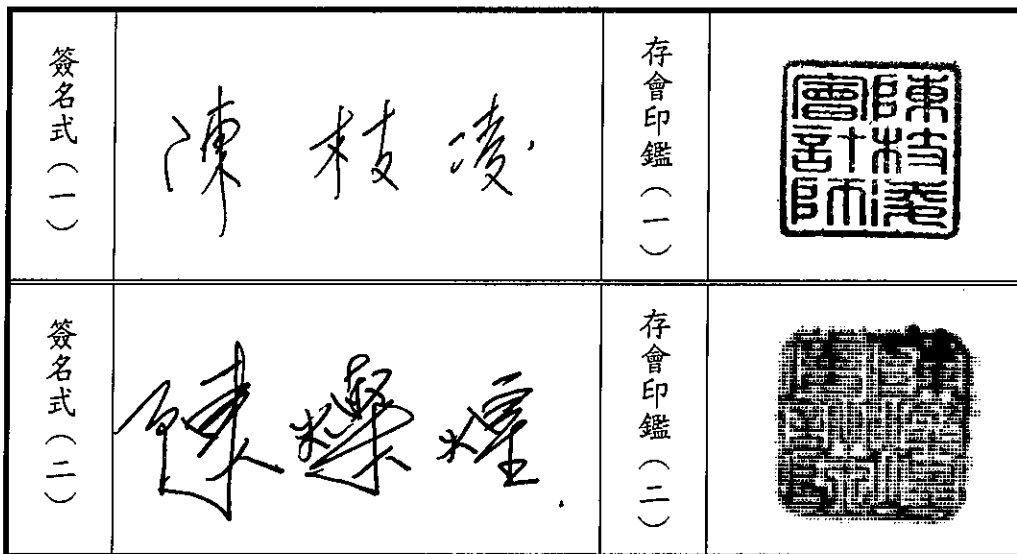 簽名式（一）
陳枝凌
存會印鑑（一）
陳枝凌會計師
簽名式（二）
陳燦煌
存會印鑑（二）